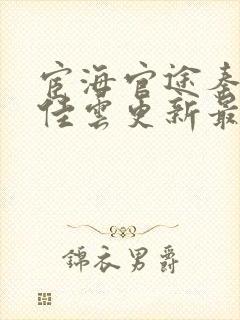 宦海官途秦
佳雲更新最
錦衣男爵